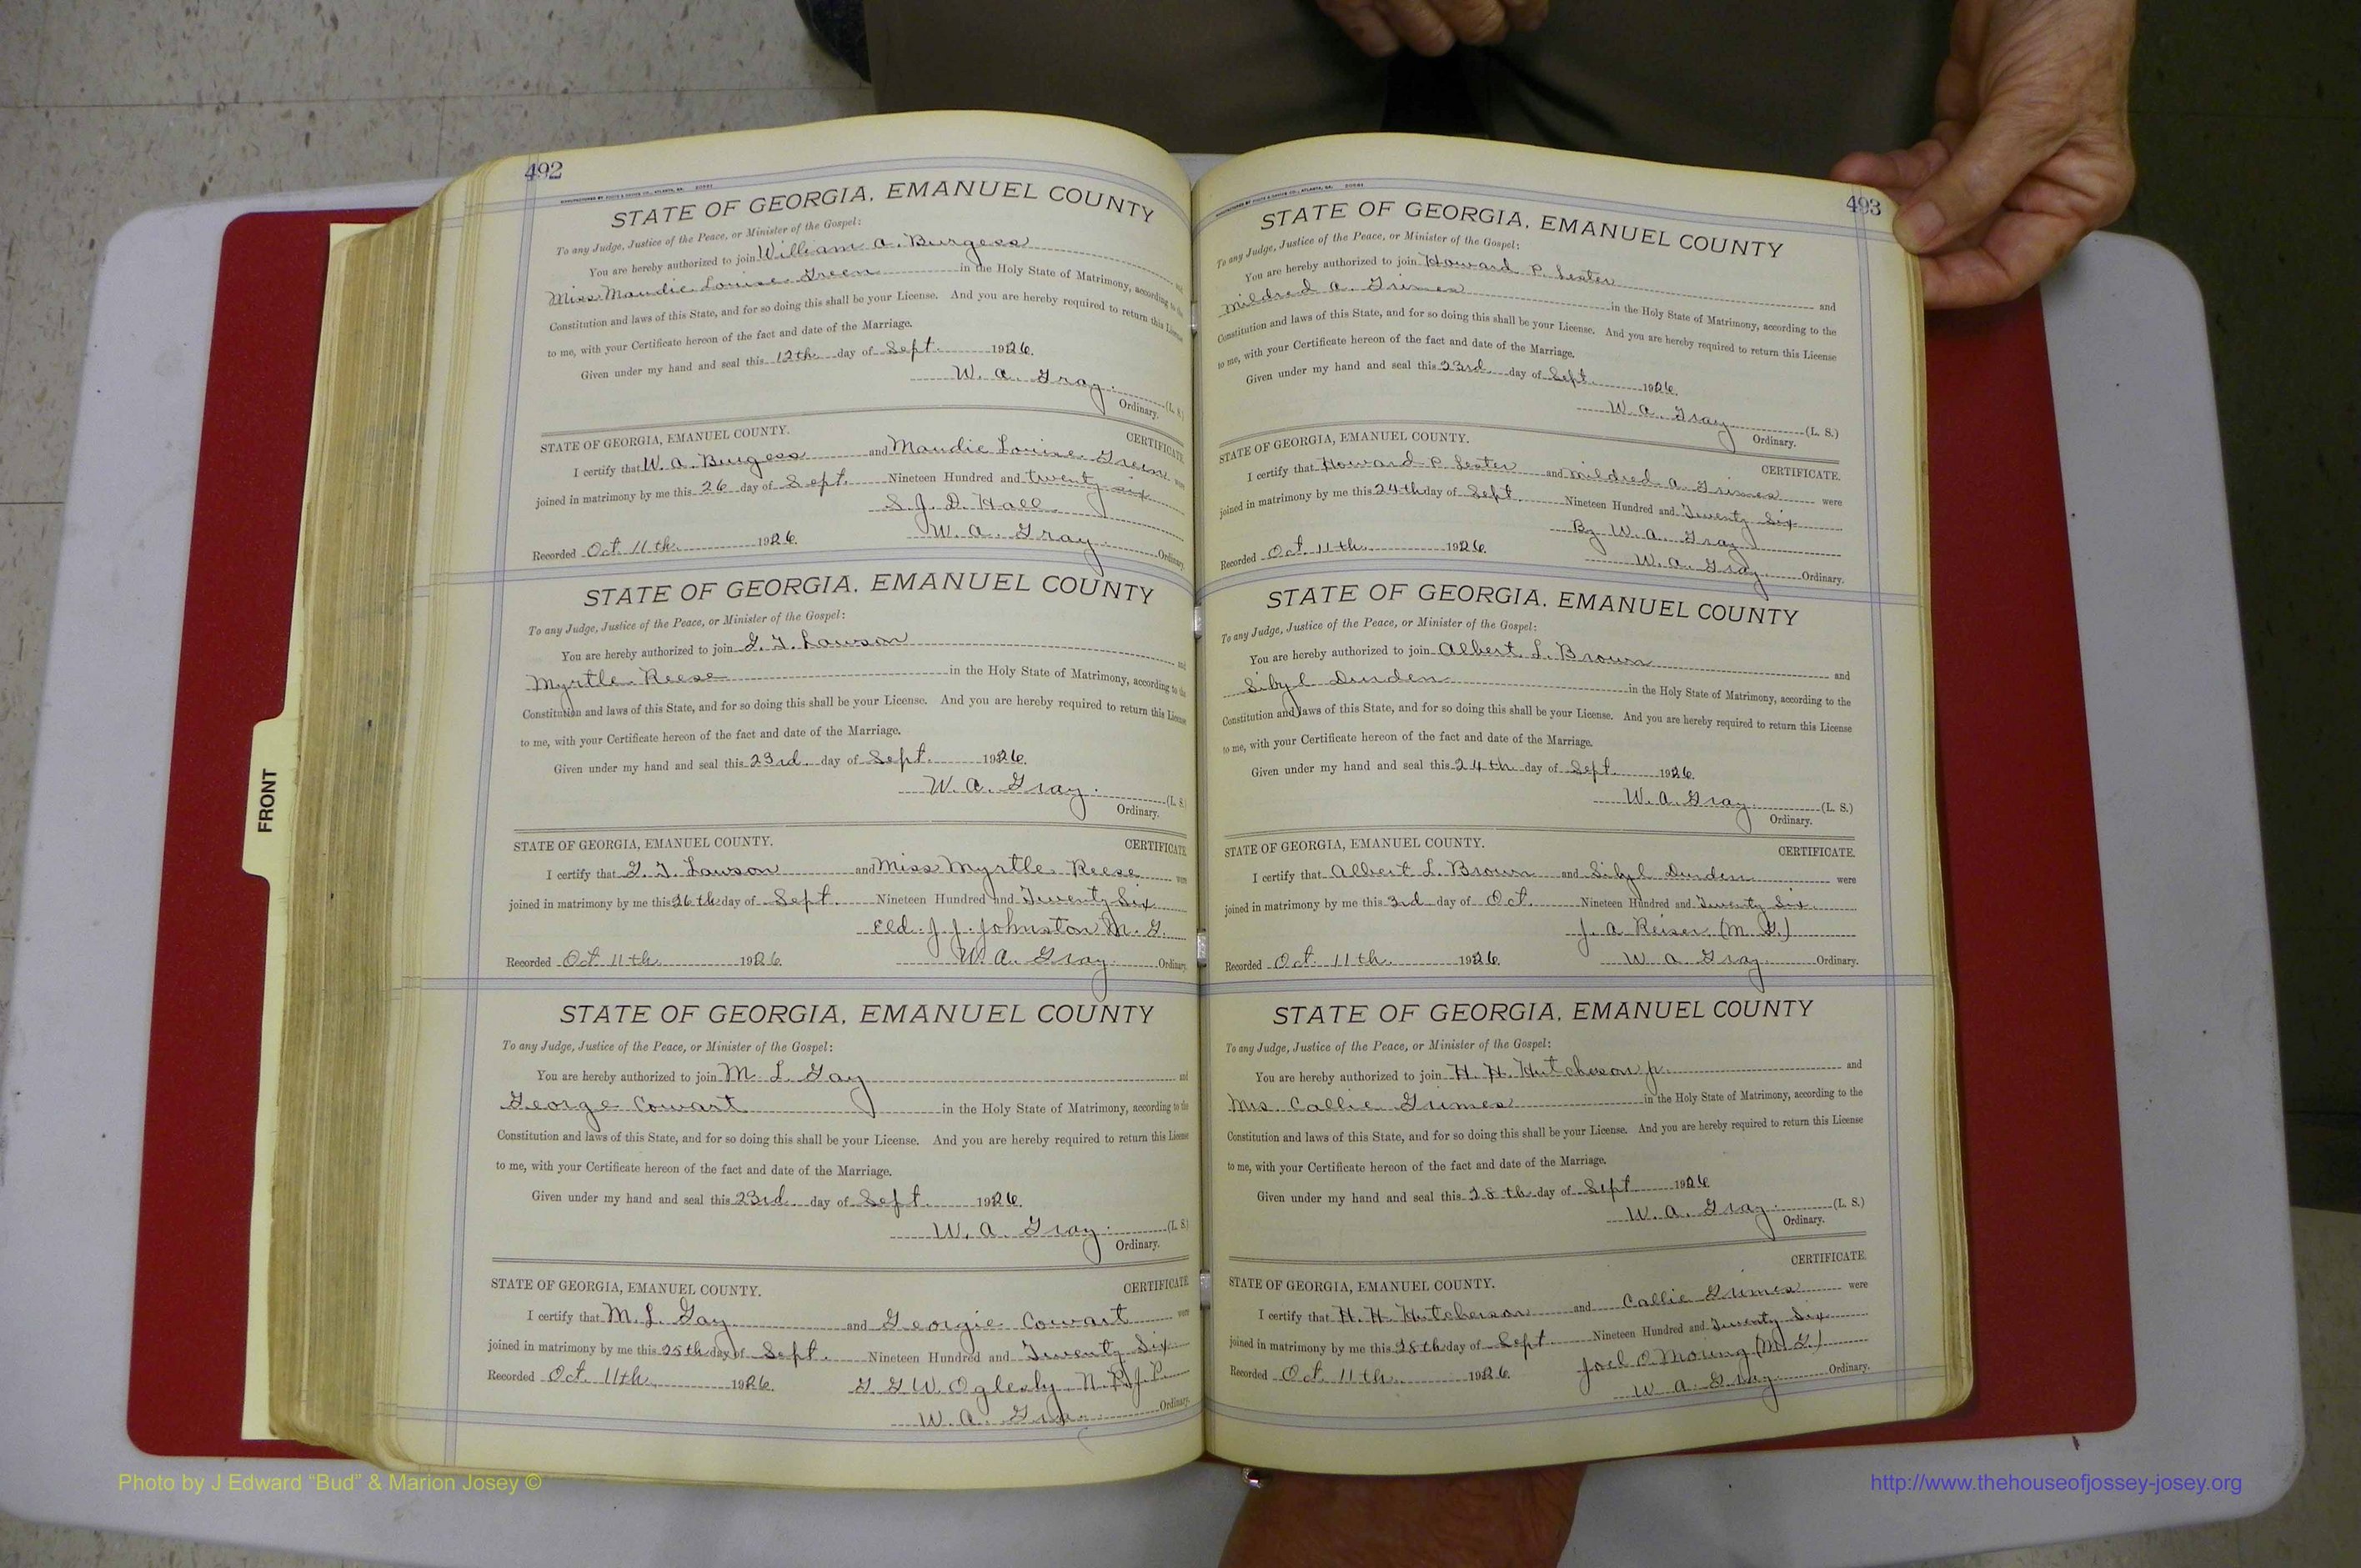 492
STATE OF GEORGIA, EMANUEL COUNTY
To any Judge, Justice of the Peace, or Minister of the Gospel:
You are hereby authorized to join William A. Burgess and
Miss Maudie Louise Green in the Holy State of Matrimony, according to the
Constitution and laws of this State, and for so doing this shall be your License. And you are hereby required to return this License
to me, with your Certificate hereon of the fact and date of the Marriage.
Given under my hand and seal this 12th day of Sept. 1926.
W. A. Gray. (L. S.)
Ordinary.
STATE OF GEORGIA, EMANUEL COUNTY. CERTIFICATE
I certify that W. A. Burgess and Maudie Louise Green were
joined in matrimony by me this 26 day of Sept. Nineteen Hundred and twenty six
S. J. D. Hall
Recorded Oct. 11th. 1926. W. A. Gray. Ordinary.
STATE OF GEORGIA, EMANUEL COUNTY
To any Judge, Justice of the Peace, or Minister of the Gospel:
You are hereby authorized to join G. T. Lawson and
Myrtle Reese in the Holy State of Matrimony, according to the
Constitution and laws of this State, and for so doing this shall be your License. And you are hereby required to return this License
to me, with your Certificate hereon of the fact and date of the Marriage.
Given under my hand and seal this 23rd. day of Sept. 1926.
W. A. Gray. (L. S.)
Ordinary.
STATE OF GEORGIA, EMANUEL COUNTY. CERTIFICATE
I certify that G. T. Lawson and Miss Myrtle Reese were
joined in matrimony by me this 26th day of Sept. Nineteen Hundred and Twenty Six
Eld. J. J. Johnston M. G.
Recorded Oct. 11th. 1926. W. A. Gray. Ordinary.
STATE OF GEORGIA, EMANUEL COUNTY
To any Judge, Justice of the Peace, or Minister of the Gospel:
You are hereby authorized to join M. L. Gay and
George Cowart in the Holy State of Matrimony, according to the
Constitution and laws of this State, and for so doing this shall be your License. And you are hereby required to return this License
to me, with your Certificate hereon of the fact and date of the Marriage.
Given under my hand and seal this 23rd. day of Sept. 1926.
W. A. Gray. (L. S.)
Ordinary.
STATE OF GEORGIA, EMANUEL COUNTY. CERTIFICATE
I certify that M. L. Gay and Georgie Cowart were
joined in matrimony by me this 25th day of Sept. Nineteen Hundred and Twenty Six
Recorded Oct. 11th. 1926. G. G. W. Oglesby N. P. J. P.
W. A. Gray. Ordinary.
493
STATE OF GEORGIA, EMANUEL COUNTY
To any Judge, Justice of the Peace, or Minister of the Gospel:
You are hereby authorized to join Howard P. Lester and
Mildred A. Grimes in the Holy State of Matrimony, according to the
Constitution and laws of this State, and for so doing this shall be your License. And you are hereby required to return this License
to me, with your Certificate hereon of the fact and date of the Marriage.
Given under my hand and seal this 23rd. day of Sept. 1926.
W. A. Gray (L. S.)
Ordinary.
STATE OF GEORGIA, EMANUEL COUNTY. CERTIFICATE.
I certify that Howard P. Lester and Mildred A. Grimes were
joined in matrimony by me this 24th day of Sept. Nineteen Hundred and Twenty Six
By W. A. Gray
Recorded Oct. 11th. 1926. W. A. Gray. Ordinary.
STATE OF GEORGIA, EMANUEL COUNTY
To any Judge, Justice of the Peace, or Minister of the Gospel:
You are hereby authorized to join Albert L. Brown and
Sibyl Durden in the Holy State of Matrimony, according to the
Constitution and laws of this State, and for so doing this shall be your License. And you are hereby required to return this License
to me, with your Certificate hereon of the fact and date of the Marriage.
Given under my hand and seal this 24th day of Sept. 1926.
W. A. Gray. (L. S.)
Ordinary.
STATE OF GEORGIA, EMANUEL COUNTY. CERTIFICATE.
I certify that Albert L. Brown and Sibyl Durden were
joined in matrimony by me this 3rd day of Oct. Nineteen Hundred and Twenty Six.
J. A. Reiser (M. G.)
Recorded Oct. 11th. 1926. W. A. Gray. Ordinary.
STATE OF GEORGIA, EMANUEL COUNTY
To any Judge, Justice of the Peace, or Minister of the Gospel:
You are hereby authorized to join H. H. Hutcheson Jr. and
Mrs. Callie Grimes in the Holy State of Matrimony, according to the
Constitution and laws of this State, and for so doing this shall be your License. And you are hereby required to return this License
to me, with your Certificate hereon of the fact and date of the Marriage.
Given under my hand and seal this 28th day of Sept 1926
W. A. Gray. (L. S.)
Ordinary.
STATE OF GEORGIA, EMANUEL COUNTY. CERTIFICATE.
I certify that H. H. Hutcheson and Callie Grimes were
joined in matrimony by me this 28th day of Sept. Nineteen Hundred and Twenty Six
Joel O. (M. G.)
Recorded Oct. 11th. 1926. W. A. Gray. Ordinary.
FRONT
Photo by J Edward “Bud” & Marion Josey ©
http://www.thehouseofjossey-josey.org